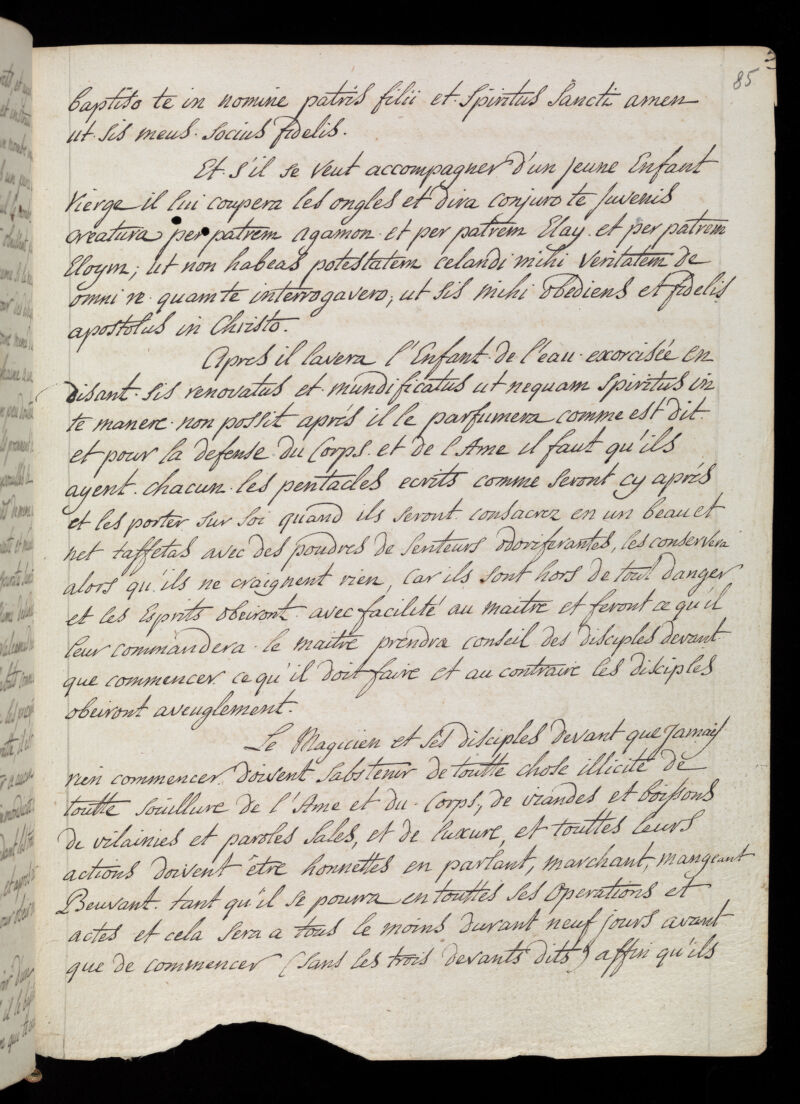 85
baptiso te in nomine patris filii et Spiritus Sancti amen
ut sis meus socius fidelis.
Et s'il se veut accompagner d'un jeune Enfant
vierge il lui coupera les ongles et dira conjuro te Juvenis
creatura per patrem agamon et per patrem Elay et per patrem
Eloym; ut non habeas potestatem celandi mihi veritatem de
omni re quam te interrogavero; ut sis mihi obediens et fidelis
apostolus in Christo.
Apres il lavera l'Enfant de l'eau exorcisée en
disant sis renovatus et mundificatus ut nequam Spiritus in
te manere non possit aprés il le parfumera comme est dit
et pour la defense du Corps et de l'Ame il faut qu'ils
ayent chacun les pentacles ecrits comme seront cy aprés
et les porter sur soi quand ils seront consacrez en un beau et
net taffetas avec des poudres de senteurs odoriferantes, les conservera
alors qu'ils ne craignent rien, car ils sont hors de tout danger
et les Esprits obeiront avec facilité au maitre et feront ce qu'il
leur commandera le maitre prendra conseil des disciples devant
que commencer ce qu'il doit faire et au contraire les disciples
obeiront aveuglement.
Le Magicien et ses disciples devant que Jamais
rien commencer doivent s'abstenir de toutte chose illicite de
toutte souillure de l'Ame et du Corps, de viandes et boissons
de vilainies et paroles sales, et de luxure, et touttes leurs
actions doivent être honnettes en parlant, marchant, mangeant
Beuvant tant qu'il se pourra en touttes ses Operations et
actes et cela sera a tous le moins durant neuf jours avant
que de commencer (sans les trois devants dits) affin qu'ils